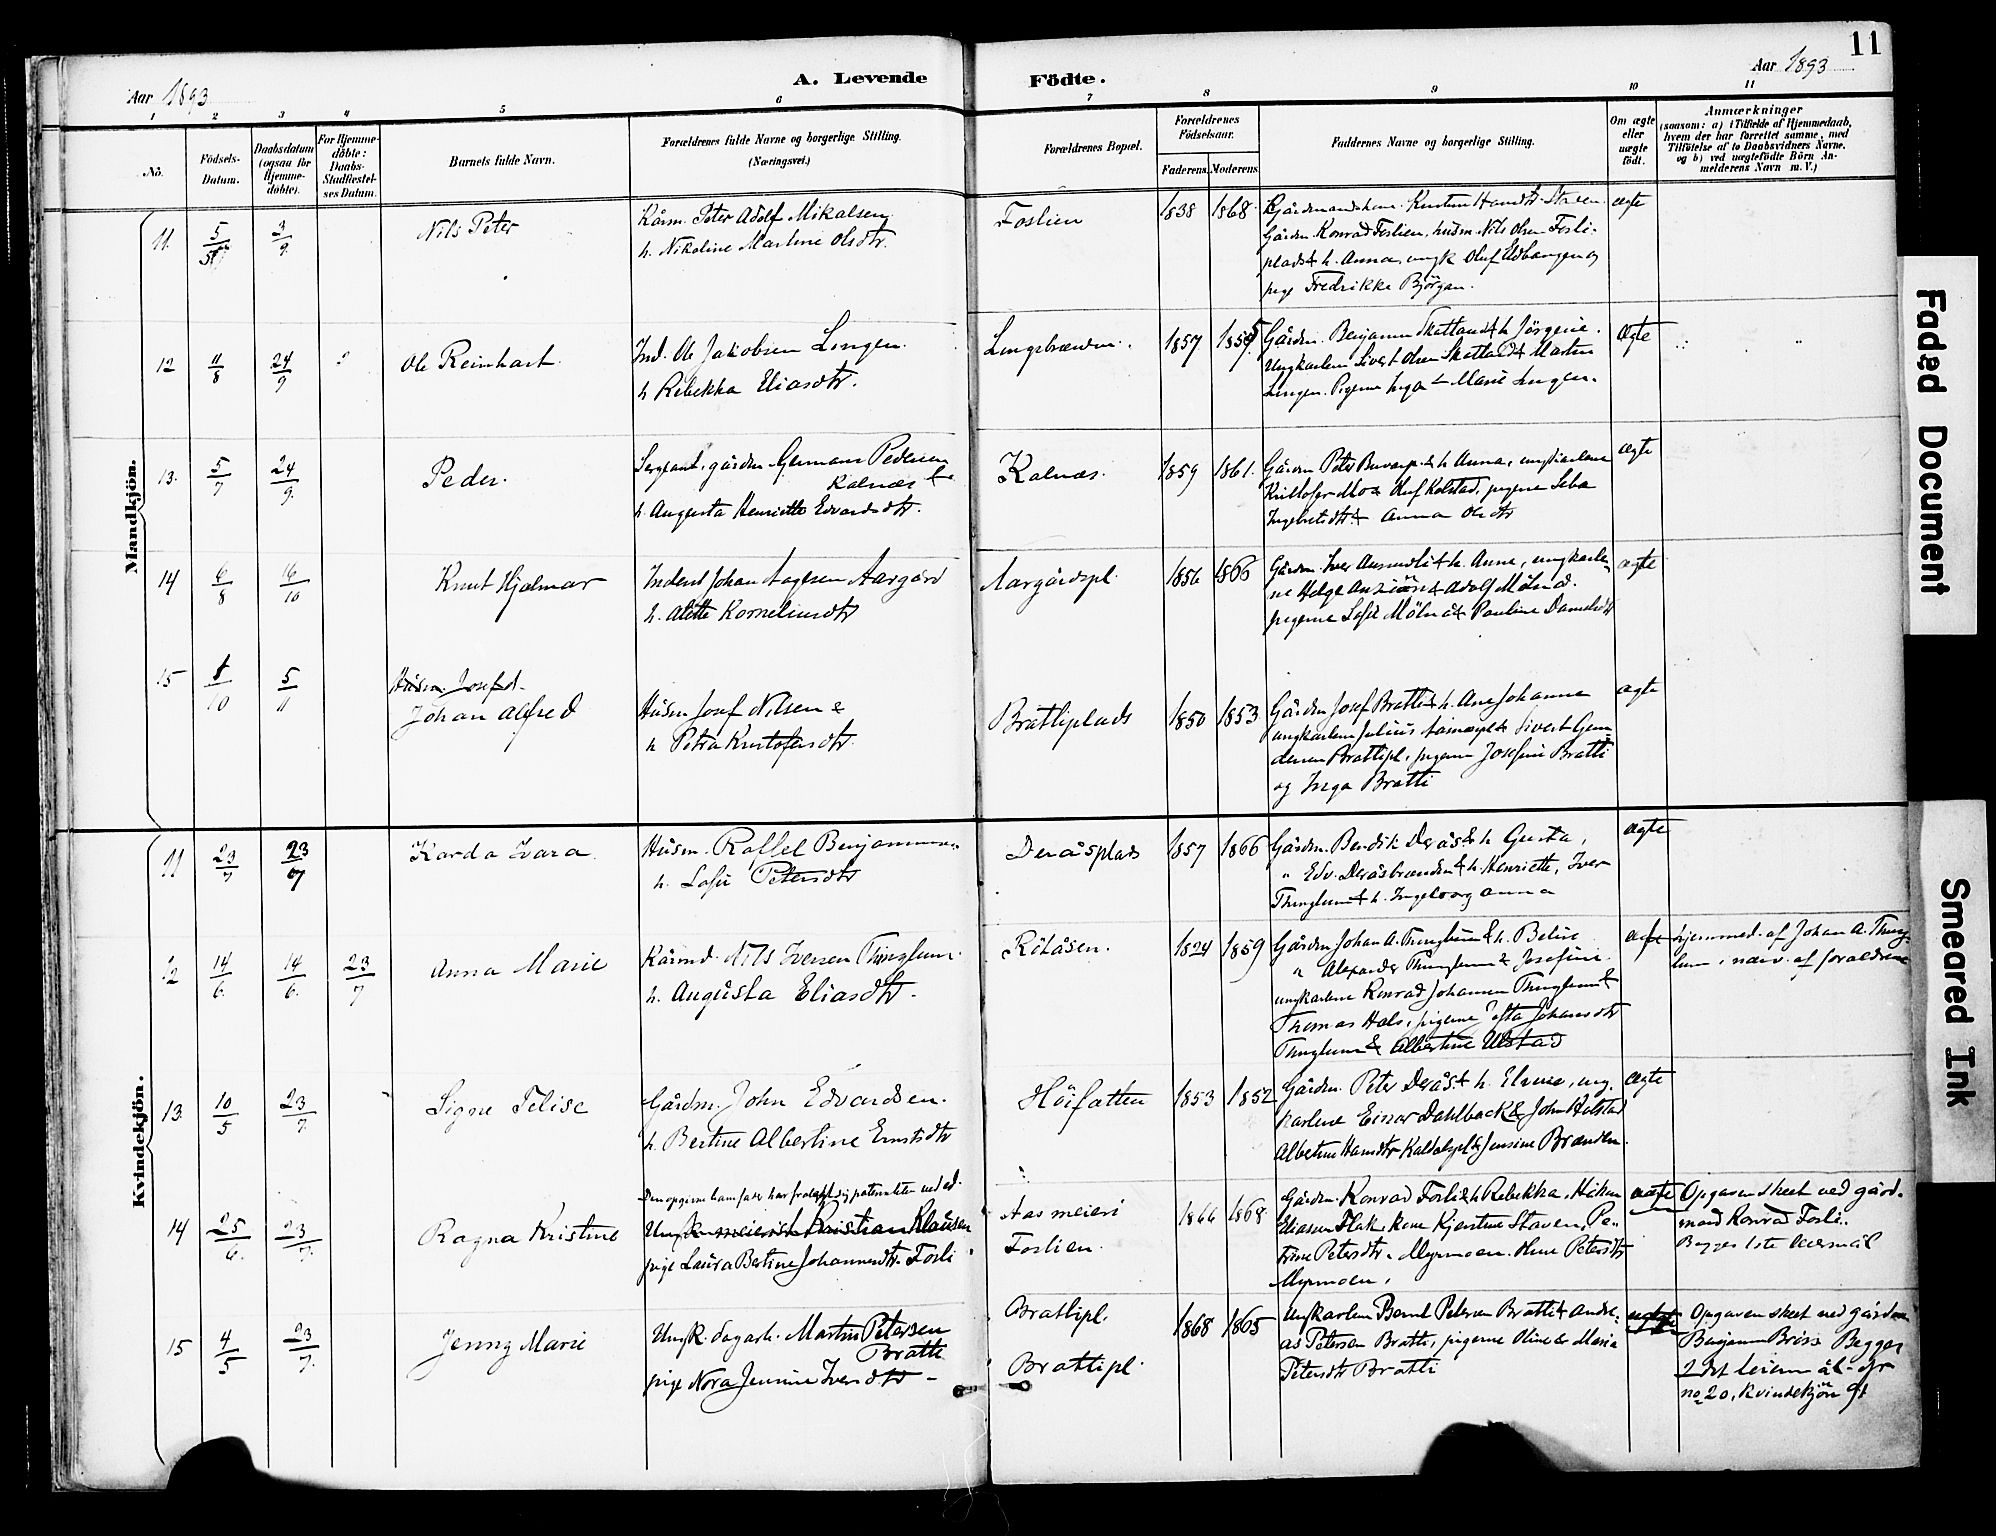 11
Aar 1893
A. Levende
Födte.
Aar 1893
1 2 3 4 5 6 7 8 9 10 11
No.
Födsels-Datum.
Daabsdatum (ogsaa for Hjemme-döbte).
For Hjemme-döbte: Daabs-Stadfæstel-ses Datum.
Barnets fulde Navn.
Forældrenes fulde Navne og borgerlige Stilling. (Næringsvei.)
Forældrenes Bopæl.
Forældrenes Födselsaar.
Faderens. Moderens.
Faddernes Navne og borgerlige Stilling.
Om ægte eller uægte födt.
Anmærkninger
(saasom: a) i Tilfælde af Hjemmedaab, hvem der har forrettet samme, med Tilföielse af to Daabsvidners Navne, og b) ved uægtefödte Börn Anmelderens Navn m. V.)
Mandkjön.
11. 5/5 3/9. Nils Peter
Kårm. Peter Adolf Mikalsen
h. Nikoline Martine Olsdtr.
Foslien 1838 1868
Gårdmandskone Kirstine Hansdtr Staven
Gårdm. Konrad Foslien, husm. Nils Olsen Fosli-
plads & h. Anna, ungk Oluf Edbangen og
pige Fredrikke Björgan.
ægte
12 11/8 24/9 Ole Reinhart
Ind. Ole Jakobsen Lingen
h. Rebekka Eliasdtr.
1857 1855
Gårdm. Benjamin Skatland & h Jörgine.
Ungkarlene Sivert Olsen Skatland & Martin
Lingen. Pigerne Inga & Marie Lingen.
ægte
13. 5/7 24/9. Peder.
Sergeant, gårdm. Germann Pedersen
Kalnæs &
h. Augusta Henriette Edvardsdtr.
Kalnæs. 1859 1861.
Gårdm Peter Buvarp & h Anna, ungkarlene
Kristofer Moa Oluf Kolstad, pigerne
Ingebretsdtr & Anna Olsdtr
ægte
14 6/8 16/10 Knut Hjalmar
Inderst Johan Aagesen Aargård
h. Alette Korneliusdtr
Aargårdspl. 1856 1866
Gårdm. Iver Aunemli & h. Anne, ungkarle-
ne Helge & Adolf Mölnå.
pigerne Sofie Mölnå & Pauline
ægte
15 8/10 5/11
Husm. Josef d.
Johan Alfred
Husm Josef Nilsen &
h Petra Kristofersdtr.
Brattiplads 1850 1853
Gårdm Josef Bratti & h. Ane Johanna
ungkarlene Julius & Sivert
Brattipl, pigerne Josefine Bratti
og Inga Bratti
ægte
Kvindekjön.
11 23/7 23/7 Karda Ivara
Husm. Raffel Benjaminsen
h. Sofie Petersdtr
Deråsplads 1857 1866
Gårdm. Bendik Derås & h Gusta,
" Edv. Deråsbrænden & h. Henriette, Iver
Thinglum & h. Ingeborg Anna
ægte
12 14/6. 14/6. 23/7 Anna Marie
Kårmd. Nils Iversen Thinglum.
h. Augusta Eliasdtr.
Rötåsen. 1824 1859
Gårdm Johan A. Thinglum & h. Beline
" Alexander Thinglum & Josefine.
ungkarlene Konrad Johansen Thinglum &
Thomas Hals, pigerne Johansdtr
Thinglum & Albertine Ulstad
ægte
hjemmed. af Johan A. Thing-
lum, nærv. af forældrene
13. 10/5 23/7. Signe Felise
Gårdm. John Edvardsen.
h. Bertine Albertine Ernstsdtr
Höifatten 1853 1852
Gårdm. Peter Derås & h. Elene, ung-
karlene Einar Dahlback & John Holstad
Albertine Hansdtr & Jensine Brænden.
ægte
14 25/6. 23/7. Ragna Kristine
Den opgivne barnefader har fralagt sig paterniteten ved ed.
Ungk. meierist Kristian Klausen
pige Laura Bertine Johannesdtr. Fosli
Aas meieri
Foslien. 1866 1868
Gårdm. Konrad Fosli & h Rebekka, Håkon
Eliasen Flak, kone Kjerstine Staven, Pe-
trine Petersdtr. Myrmoen. Oline Petersdtr
Myrmoen.
uægte
Opgaven skeet ved gård-
mand Konrad Fosli.
Begges 1ste leiermål
15 4/5 23/7. Jenny Marie
Ungk. dagarb. Martin Petersen
Bratti
pige Nora Jensine Iversdtr -
Brattipl.
Brattipl 1868 1865
Ungkarlene Bernt Petersen Bratti & Andre-
as Petersen Bratti, pigerne Oline & Maria
Petersdtr Bratti
Opgaven skeet ved gårdm.
Benjamin Begges
2det leiermål - cfr
no 20, kvindekjön 91
Faded Document
Smeared Ink